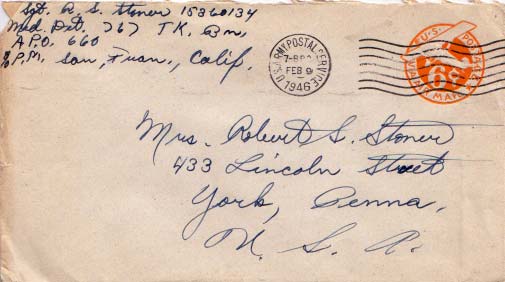 Sgt. R. S. Stoner 15360134
Med. Det. 767 T.K. Bn,
A.P.O. 660
% P.M, San, Fran., Calif.
U.S. ARMY POSTAL SERVICE
FEB 9
1946
U.S. POSTAGE
6¢
VIA AIR MAIL
Mrs. Robert S. Stoner
433 Lincoln Street
York, Penna,
U. S. A.